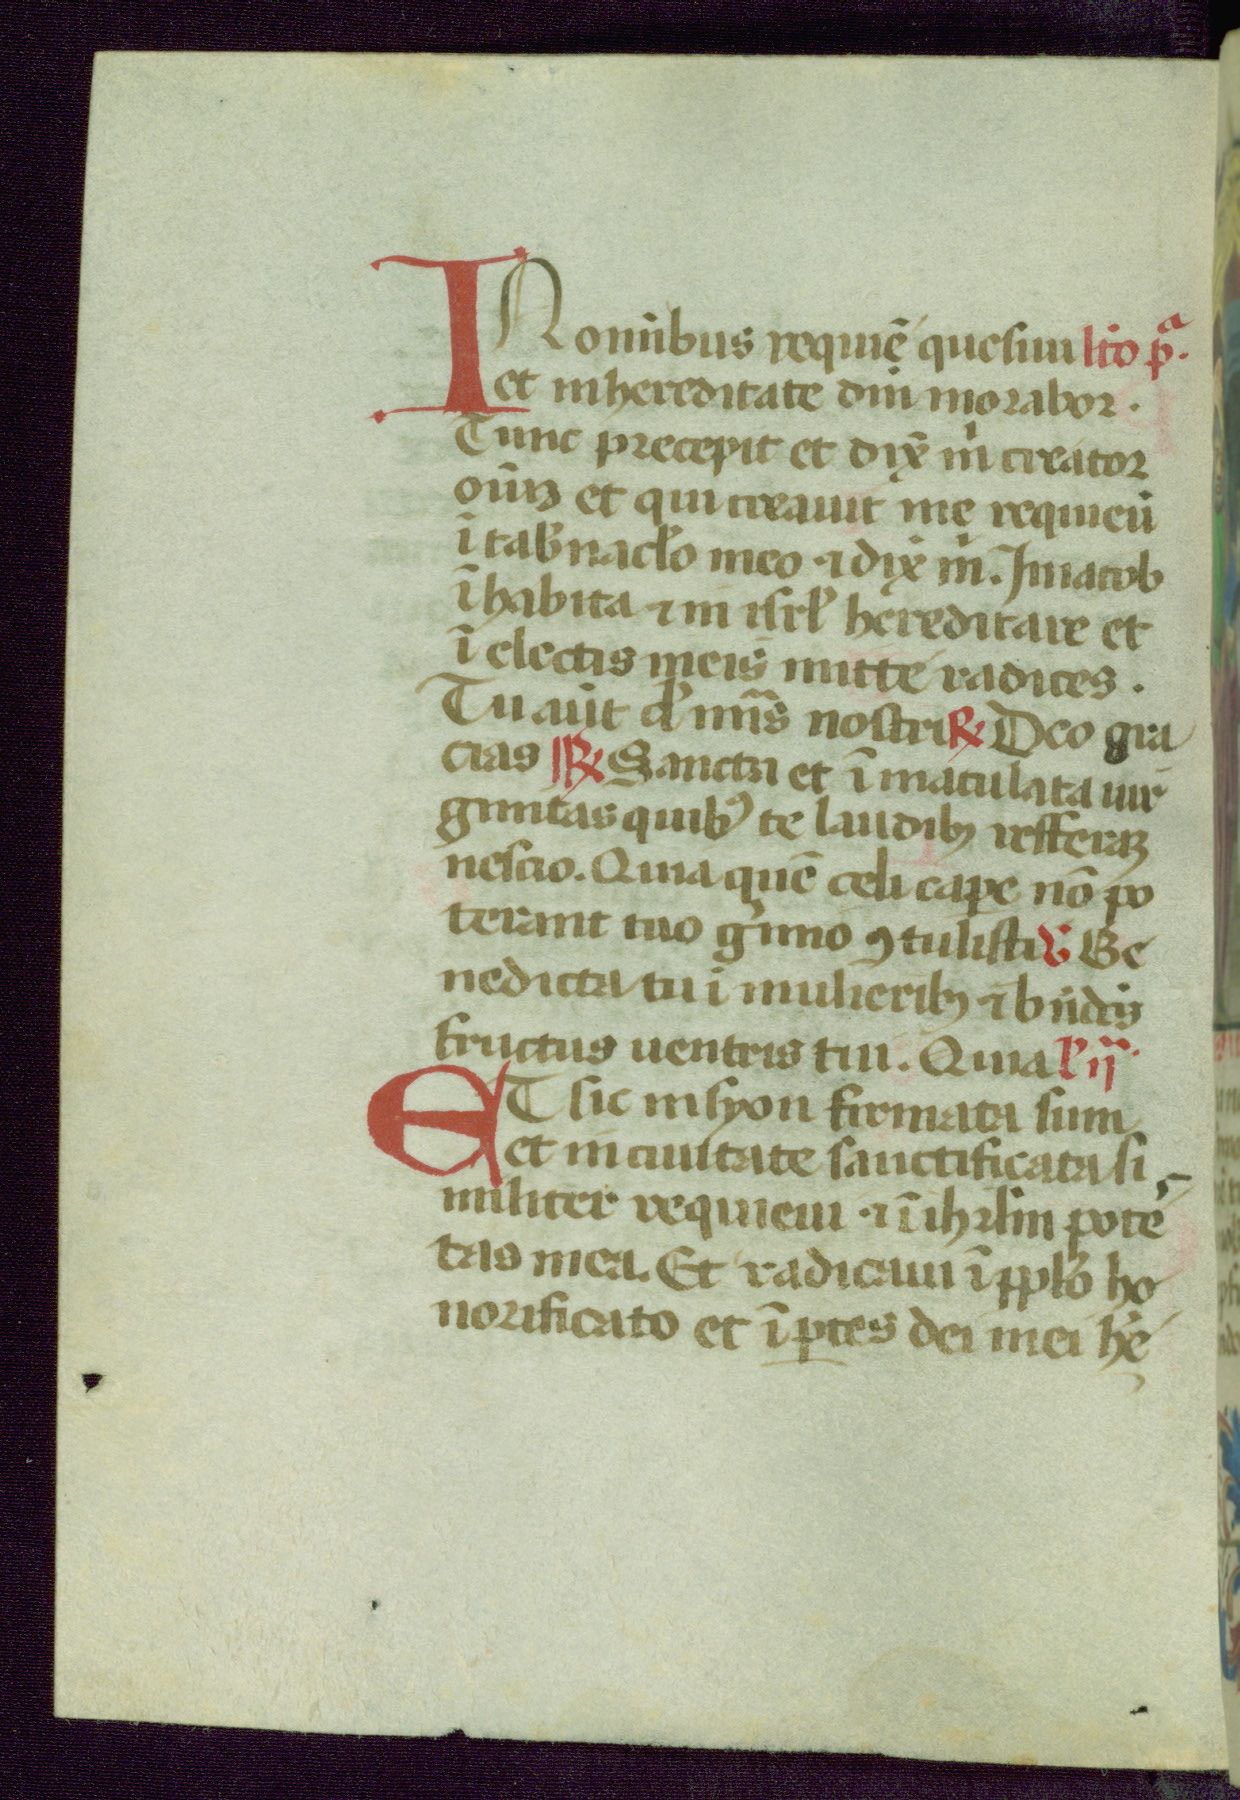 IN om̄ibus requiē quesiui lc̄o pª.
et in hereditate dn̄i morabor.
Tunc precepit et dix̄ m̄ creator
oīuʒ et qui creauit me requieuı̄
ī tab̄nac̄lo meo ⁊ dix̄ m̄. In iacob
īhabita ⁊ in isrl̄ hereditare et
ī electis meis mitte radices.
Tu aūt d̄ mīs nostri ℟ Deo gra
cias ℟ Sancta et īmaculata uir
ginitas quibꝰ te laudibꝫ refferaʒ
nescio. Quia quē celi cape nō po
terant tuo gͥmio ꝯtulisti ℣ Be
nedicta tu ī mulieribꝫ ⁊ b n̄dcs̄
fructus uentris tui. Quia l̄ ij̄.
ET sic in syon firmata sum
et in ciuitate sanctificata si
militer requieui ⁊ ī ihrl̄m potē
tas mea. Et radicaui ī ppl̄o ho
norificato et ī ꝑtes dei mei h̄e